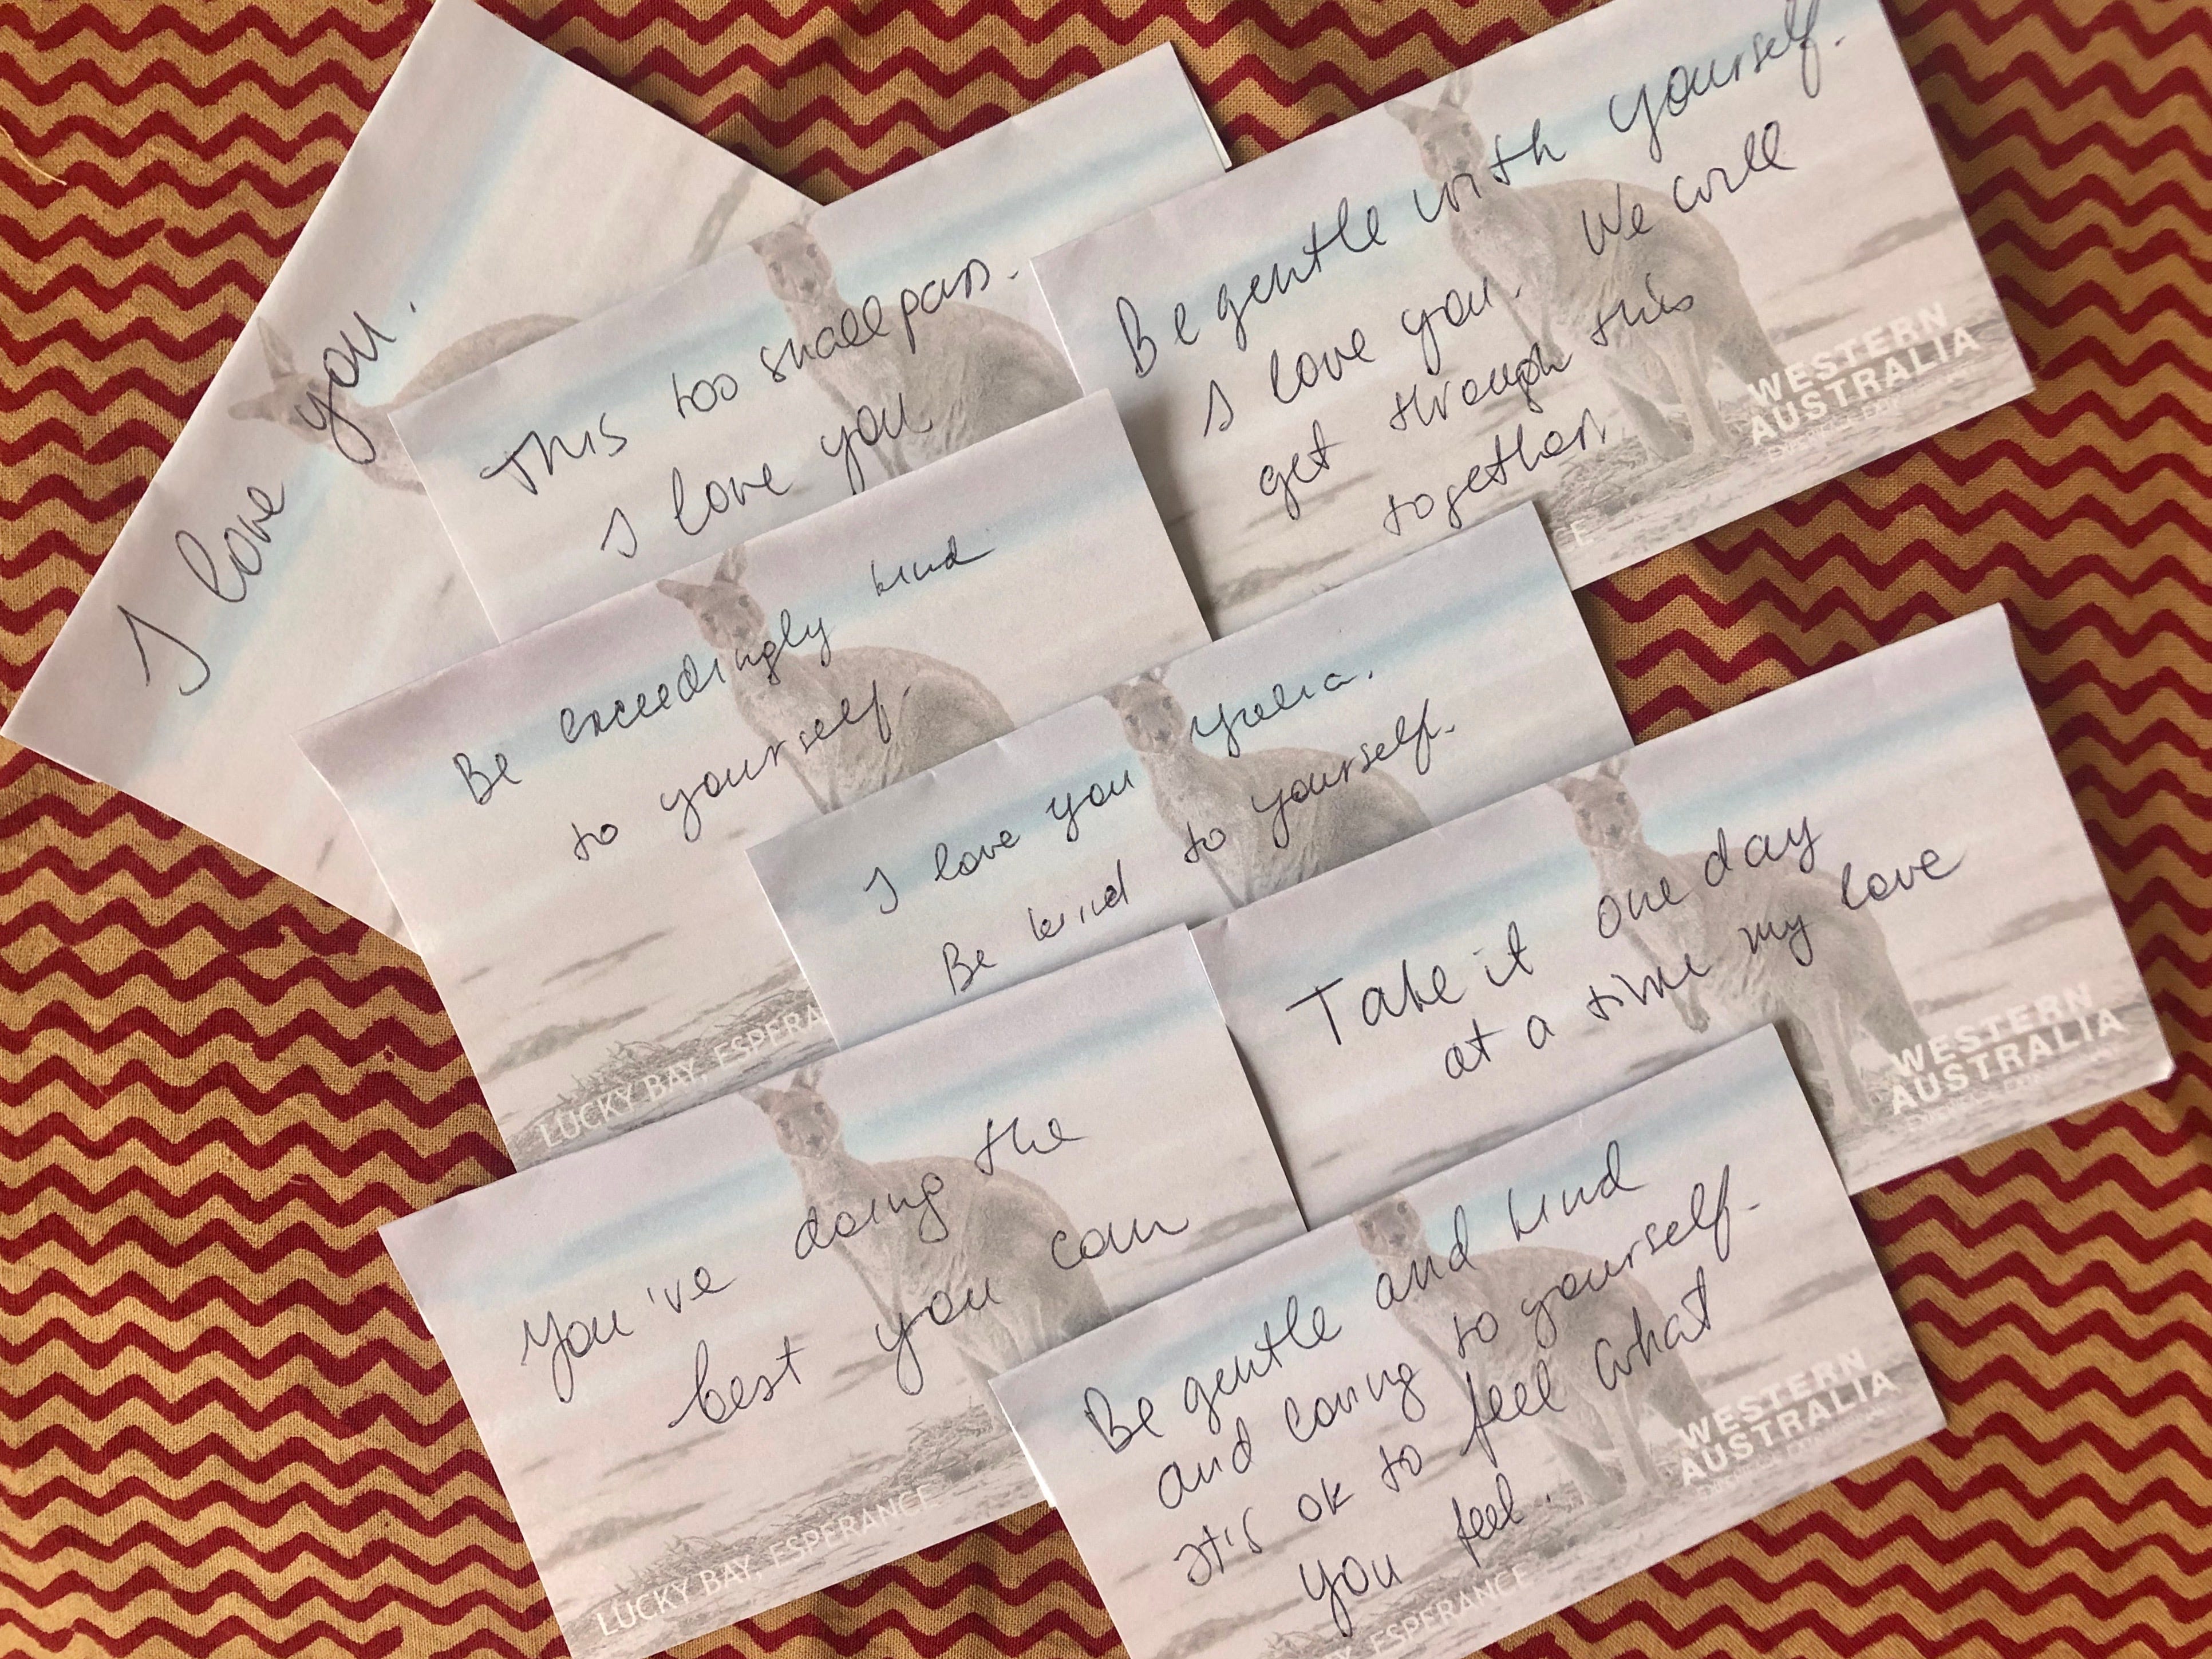 I love you.
This too shall pass.
I love you
Be gentle with yourself.
I love you. We will
get through this
together.
WESTERN
AUSTRALIA
E
Be exceedingly kind
to yourself.
LUCKY BAY, ESPERA
I love you Yulia.
Be kind to yourself.
Take it one day
at a time my love
WESTERN
AUSTRALIA
You've doing the
best you can
LUCKY BAY, ESPERANCE
Be gentle and kind
and caring to yourself.
It is ok to feel what
you feel.
WESTERN
AUSTRALIA
Y, ESPERANCE